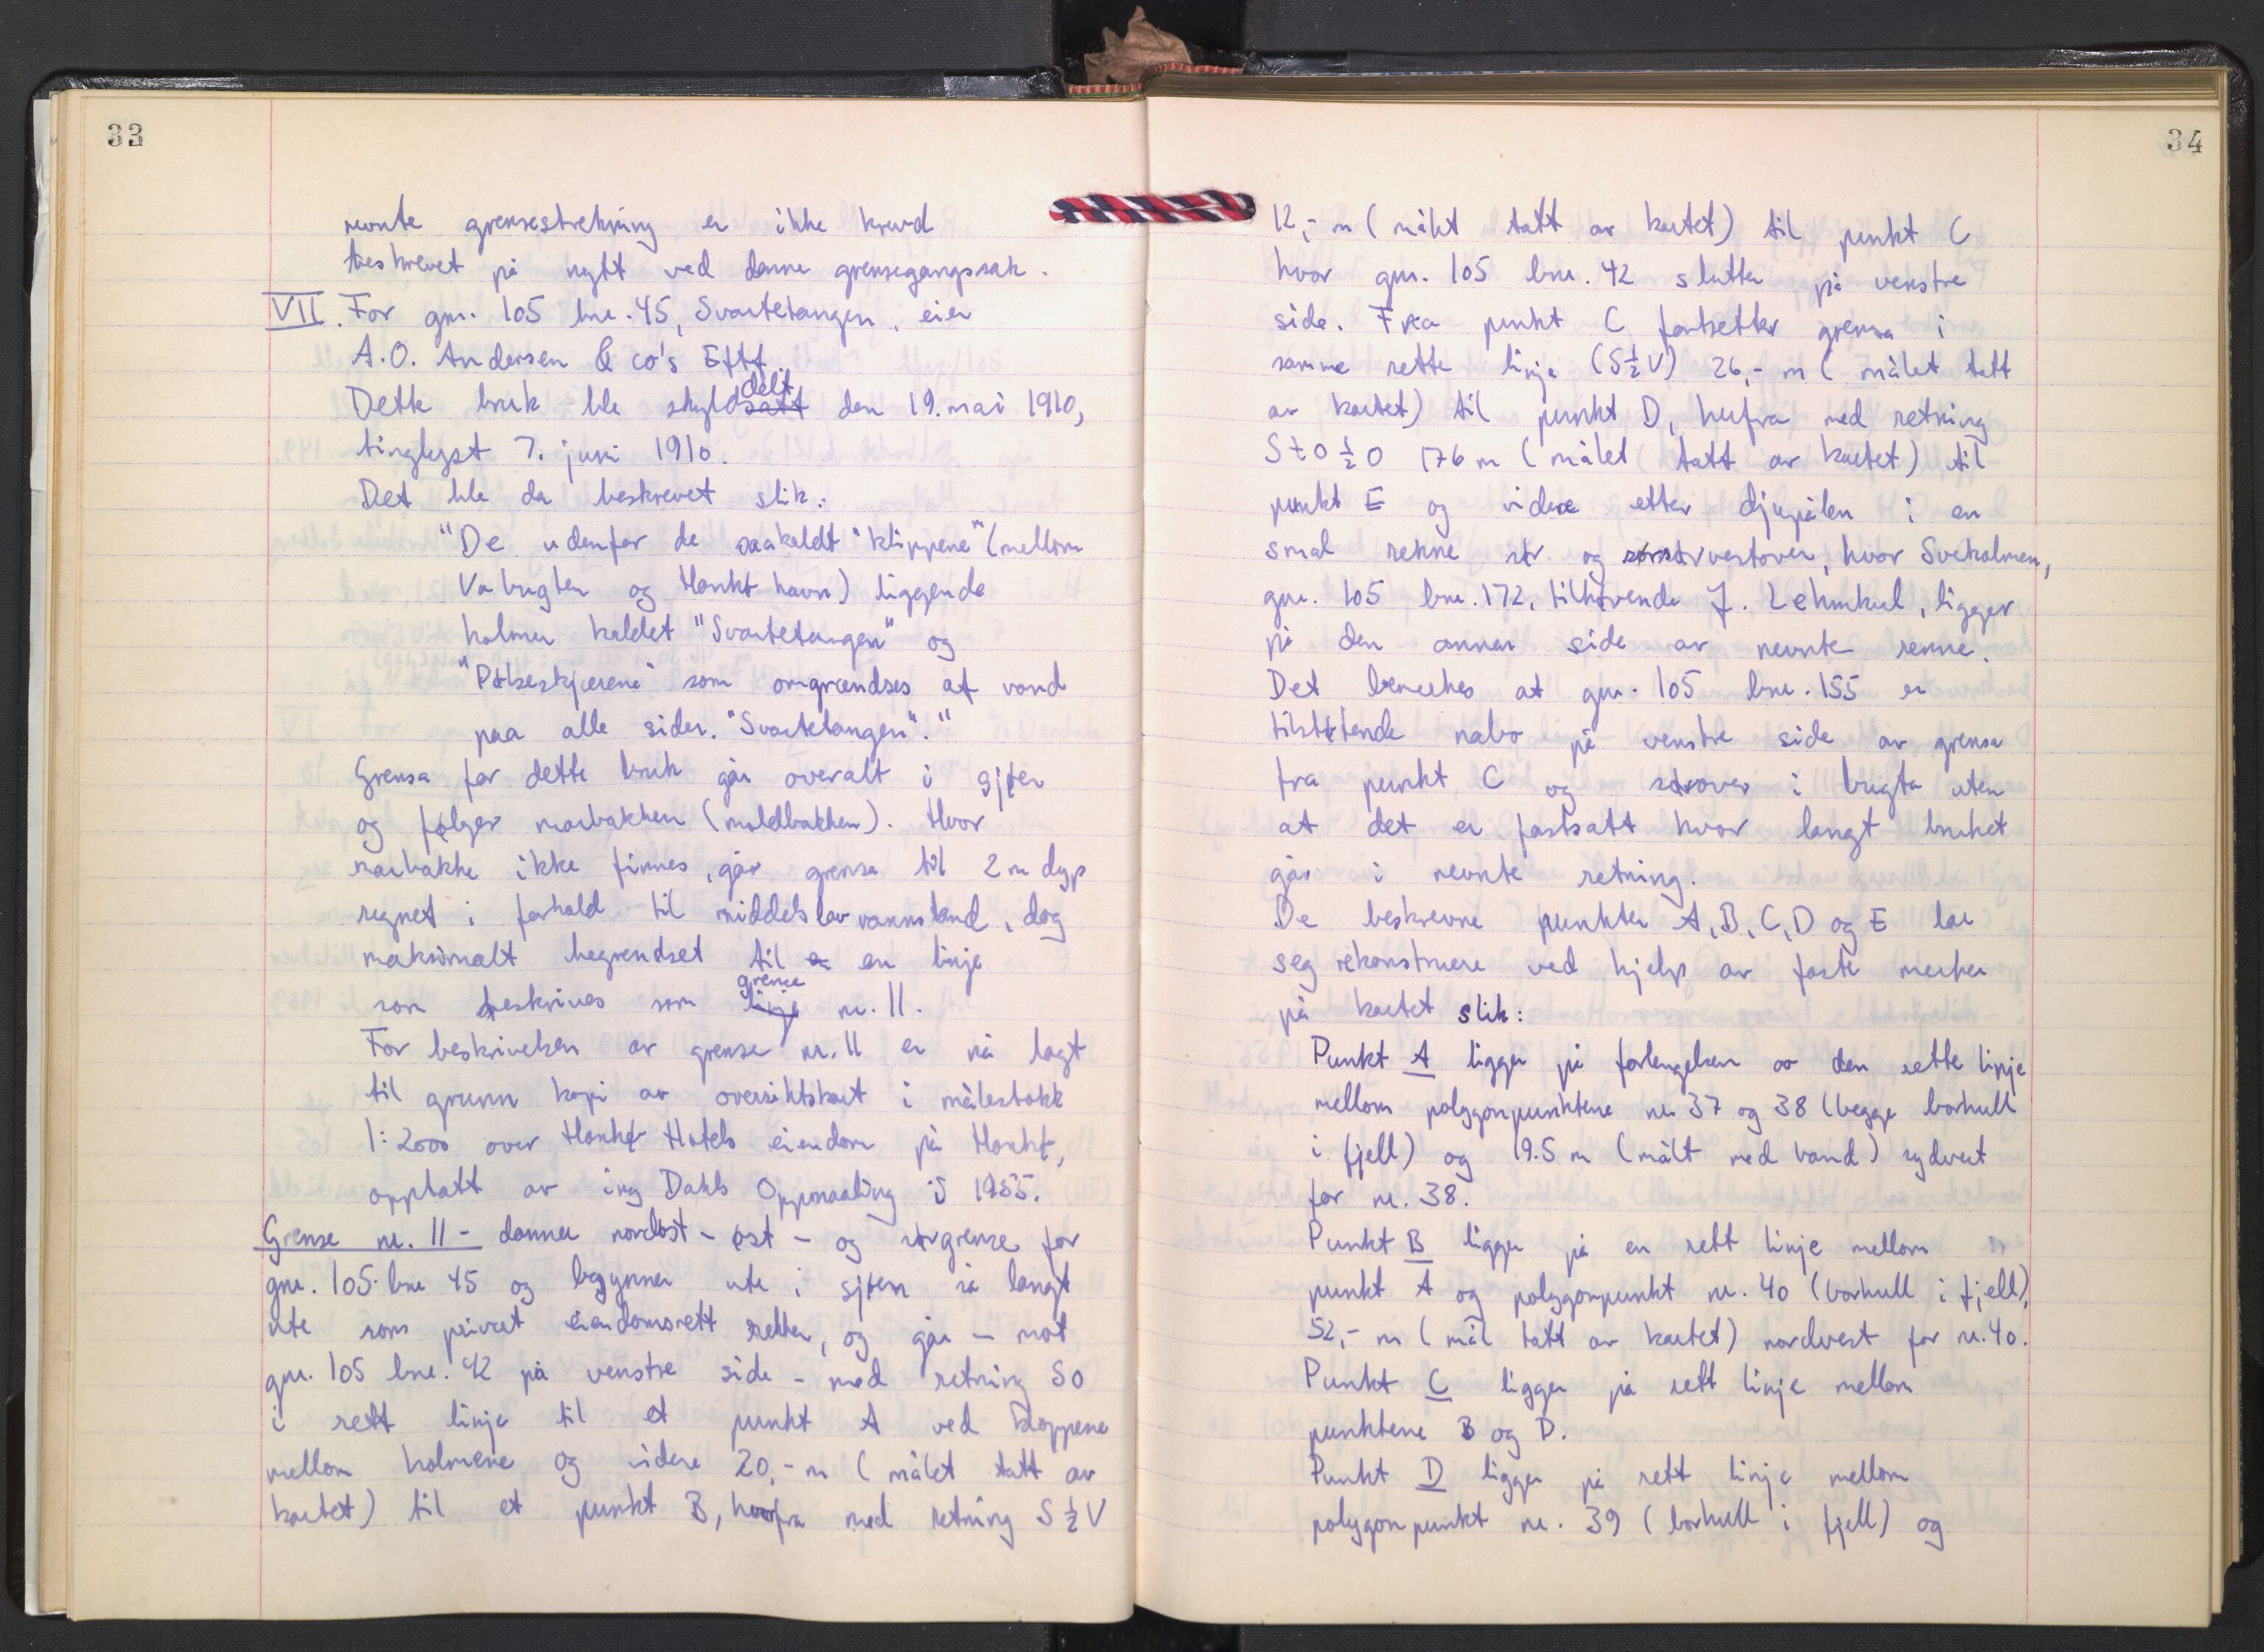 33
nevnte grensestrekning er ikke krevd
beskrevet på nytt ved denne grensegangssak.
VII. For gnr. 105 bnr. 45, Svartetangen, eier
A.O. Andersen & co's Eftf
delt
Dette bruk ble skyldsatt den 19. mai 1910,
tinglyst 7. juni 1910.
Det ble da beskrevet slik:
"De udenfor de saakaldt "klippene" (mellom
Vabugten og Hankø havn) liggende
holmer kaldet "Svartetangen" og
"Pølseskjærene" som omgrændses af vand
paa alle sider. "Svartetangen"."
Grensa for dette bruk går overalt i sjøen
og følger marbakken (moldbakken). Hvor
marbakke ikke finnes, går grensa til 2 m dyp
regnet i forhold til middelslavvannstand, dog
maksimalt begrendset til en en linje
grense
som beskrives som linje nr. 11.
For beskrivelsen av grense nr. 11 er nå lagt
til grunn kopi av oversiktskart i målestokk
1:2000 over Hankø Hotels eiendom på Hankø,
opptatt av ing Dahls Oppmaaling i 1955.
Grense nr. 11 - danner nordøst - øst - og sørgrense for
gnr. 105 bnr 45 og begynner ute i sjøen så langt
ute som privat eiendomsrett rekker, og går - mot
gnr. 105 bnr. 42 på venstre side - med retning SO
i rett linje til et punkt A ved kloppene
mellom holmene og videre 20,- m (målet tatt av
kartet) til et punkt B, hvorfra med retning S ½ V
34
12,- m (målet tatt av kartet) til punkt C
hvor gnr. 105 bnr. 42 slutter på venstre
side. Fra punkt C fortsetter grensa i
samme rette linje (S½V) 26,- m (målet tatt
av kartet) til punkt D, herfra med retning
StO½O 176 m (målet tatt av kartet) til
punkt E og videre etter djupålen i en
smal renne sør og sørsørvestover, hvor Sveholmen,
gnr. 105 bnr. 172, tilhørende J. Lehmkul, ligger
på den annen side av nevnte renne.
Det bemerkes at gnr. 105 bnr. 155 er
tilstøtende nabo på venstre side av grensa
fra punkt C og sørover i bugta uten
at det er fastsatt hvor langt bruket
går i nevnte retning.
De beskrevne punkter A, B, C, D og E lar
seg rekonstruere ved hjelp av faste merker
på kartet slik:
Punkt A ligger på forlengelsen av den rette linje
mellom polygonpunktene nr 37 og 38 (begge borhull
i fjell) og 19.5 m (målt med band) sydvest
for nr. 38.
Punkt B ligger på en rett linje mellom
punkt A og polygonpunkt nr. 40 (borhull i fjell),
52,- m (mål tatt av kartet) nordvest for nr. 40.
Punkt C ligger på rett linje mellom
punktene B og D.
Punkt D ligger på rett linje mellom
polygonpunkt nr. 39 (borhull i fjell) og